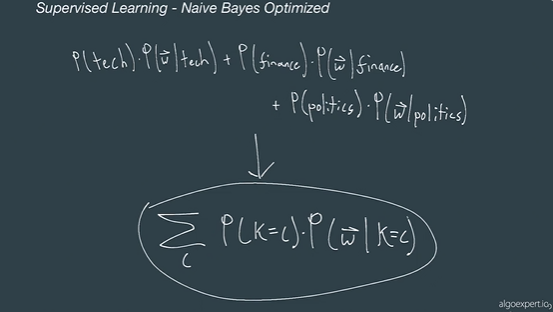 Supervised Learning - Naive Bayes Optimized
P(tech)·P(w⃗|tech) + P(finance)·P(w⃗|finance)
+ P(politics)·P(w⃗|politics)
∑ P(K=c)·P(w⃗|K=c)
c
algoexpert.io